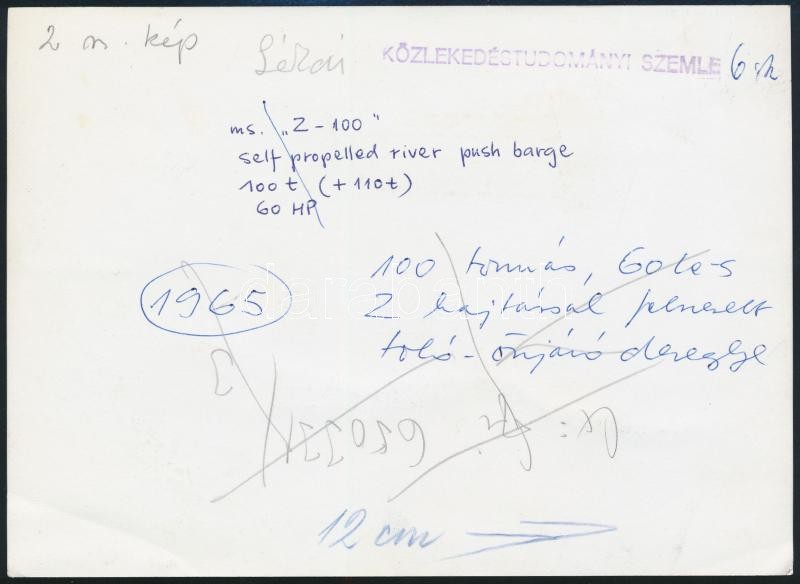 2 sz. kép
KÖZLEKEDÉSTUDOMÁNYI SZEMLE
ms. „Z-100"
self propelled river push barge
100 t (+110t)
60 HP
100 tonnás, 60 le-s
1965
Z hajtással felszerelt
toló-önjáró dereglye
12 cm
darabanth